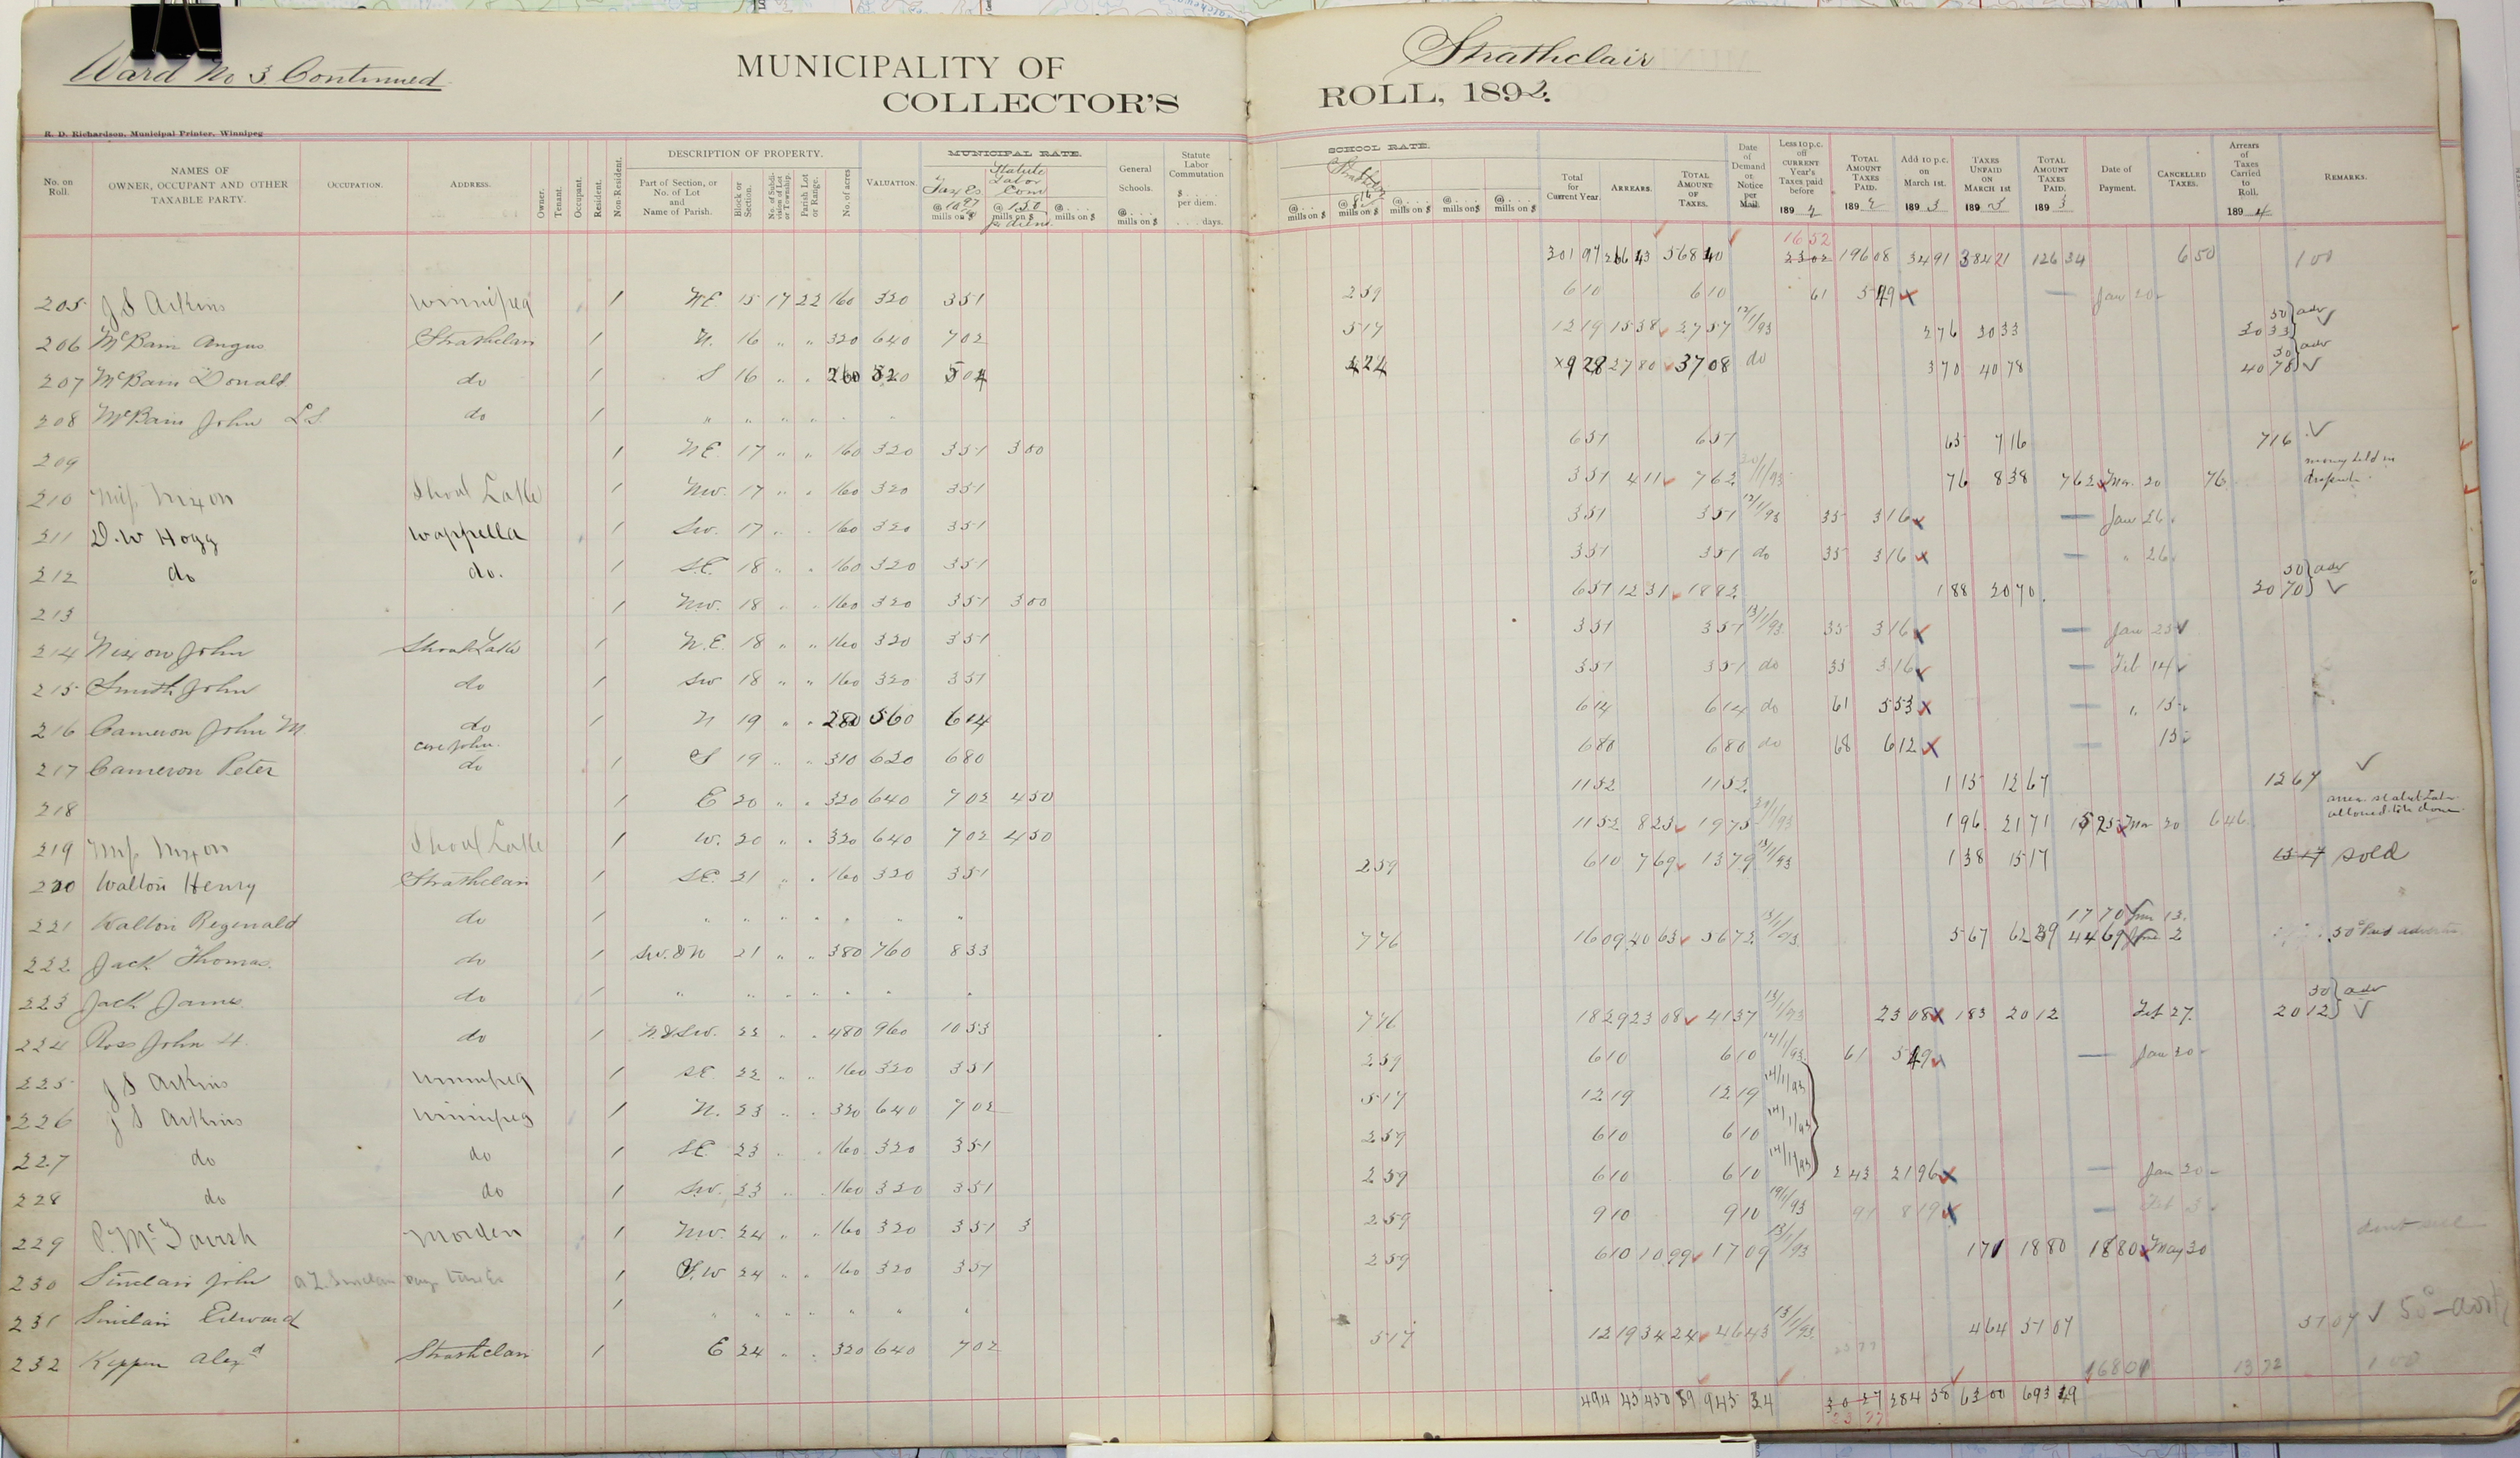 Ward No 3 Continued
MUNICIPALITY OF Strathclair
COLLECTOR'S ROLL, 1892.
R. D. Richardson, Municipal Printer, Winnipeg
No. on Roll. NAMES OF OWNER, OCCUPANT AND OTHER TAXABLE PARTY. OCCUPATION. ADDRESS. Owner. Tenant. Occupant. Resident. Non-Resident. DESCRIPTION OF PROPERTY. Part of Section, or No. of Lot and Name of Parish. Block or Section. No. of Subdivision of Lot or Township. Parish Lot or Range. No. of acres VALUATION. MUNICIPAL RATE. Taxes @ 10 97 mills on $ Statute Labor Com @ 1.50 mills on $ per diem. @ . . . . mills on $ General Schools. @ . . . . mills on $ Statute Labor Commutation $ . . . . per diem. . . . . days.
SCHOOL RATE. @ . . . . mills on $ @ mills on $ @ . . . . mills on $ @ . . . . mills on $ @ . . . . mills on $ Total for Current Year. ARREARS. TOTAL AMOUNT OF TAXES. Date of Demand or Notice per Mail. Less 10 p.c. off CURRENT Year's Taxes paid before 189 TOTAL AMOUNT TAXES PAID. 189 Add 10 p.c. on March 1st. 189 3 TAXES UNPAID ON MARCH 1ST 189 3 TOTAL AMOUNT TAXES PAID. 189 3 Date of Payment. CANCELLED TAXES. Arrears of Taxes Carried to Roll. 189 4 REMARKS.
301 97 266 43 568 40 16 52 23 02 196 08 34 91 384 21 126 34 6 50 1 00
205 J S Aikins Winnipeg 1 NE 15 17 22 160 320 3 51 2 59 6 10 6 10 61 5 49 x — Jan 20
206 McBain Angus Strathclair 1 N. 16 " " 320 640 7 02 5 17 12 19 15 38 27 57 12/1/93 2 76 30 33 50 } adv 30 33 ✓
207 McBain Donald do 1 S 16 " " 260 520 5 04 4 24 x 9 28 27 80 37 08 do 3 70 40 78 50 } adv 40 78 ✓
208 McBain John L.S. do 1 " " " "
209 1 NE. 17 " " 160 320 3 51 3 00 6 51 6 51 65 7 16 7 16 ✓
210 Miss Nixon Shoal Lake 1 NW. 17 " " 160 320 3 51 3 51 4 11 7 62 20/1/93 76 8 38 7 62 x Mar. 20 76 money held in
211 D. W Hogg Wappella 1 SW. 17 " 160 320 3 51 3 51 3 51 12/1/93 35 3 16 x — Jan 26
212 do do. 1 S.E. 18 " " 160 320 3 51 3 51 3 51 do 35 3 16 x — " 26
213 1 NW. 18 " " 160 320 3 51 3 00 6 51 12 31 18 82 1 88 20 70 50 } adv 20 70 ✓
214 Nixon John Shoal Lake 1 N.E. 18 " " 160 320 3 51 3 51 3 51 13/1/93 35 3 16 x — Jan 25 ✓
215 Smith John do 1 SW 18 " " 160 320 3 51 3 51 3 51 do 35 3 16 x — Feb 14 ✓
216 Cameron John M do 1 N 19 " " 280 560 6 14 6 14 6 14 do 61 5 53 x — " 15
217 Cameron Peter care John do 1 S 19 " " 310 620 6 80 6 80 6 80 do 68 6 12 x — 15
218 1 E 20 " " 320 640 7 02 4 50 11 52 11 52 1 15 12 67 12 67 ✓
219 Miss Nixon Shoal Lake 1 W. 20 " " 320 640 7 02 4 50 11 52 8 23 19 75 20/1/93 1 96 21 71 15 25 x Mar 20 6 46
220 Walton Henry Strathclair 1 SE 21 " " 160 320 3 51 2 59 6 10 7 69 13 79 13/1/93 1 38 15 17 15 17 Sold
221 Walton Reginald do 1 " " " " " " "
222 Jack Thomas. do 1 SW. & N 21 " " 380 760 8 33 7 76 16 09 40 63 56 72 13/1/93 5 67 62 39 17 70 Jan 13. 44 69 June 2 50c Paid
223 Jack James do 1 " " " " " " "
224 Ross John H. do 1 N & SW. 22 " " 480 960 10 53 7 76 18 29 23 08 41 37 13/1/93 23 08 x 1 83 20 12 Feb 27. 50 } adv 20 12 ✓
225 J S Aikins Winnipeg 1 SE 22 " " 160 320 3 51 2 59 6 10 6 10 14/1/93 61 5 49 — Jan 20
226 J S Aikins Winnipeg 1 N. 23 " " 320 640 7 02 5 17 12 19 12 19 14/1/93
227 do do 1 SE. 23 " " 160 320 3 51 2 59 6 10 6 10 14/1/93
228 do do 1 SW. 23 " 160 320 3 51 2 59 6 10 6 10 14/1/93 2 43 21 96 x — Jan 20
229 P. McTavish Morden 1 NW. 24 " " 160 320 3 51 3 2 59 9 10 9 10 19/1/93 91 8 19 x — Feb 3
230 Sinclair John A. L. Sinclair pays taxes 1 S.W 24 " " 160 320 3 51 2 59 6 10 10 99 17 09 13/1/93 1 71 18 80 18 80 x May 30 dont sell
231 Sinclair Edward 1 " " " " " " "
232 Keppen Alexd Strathclair 1 E 24 " " 320 640 7 02 5 17 12 19 34 24 46 43 13/1/93 4 64 51 07 51 07 ✓ 50
168 01 13 72 1 00
494 45 450 89 945 34 30 27 23 77 284 38 63 00 693 49